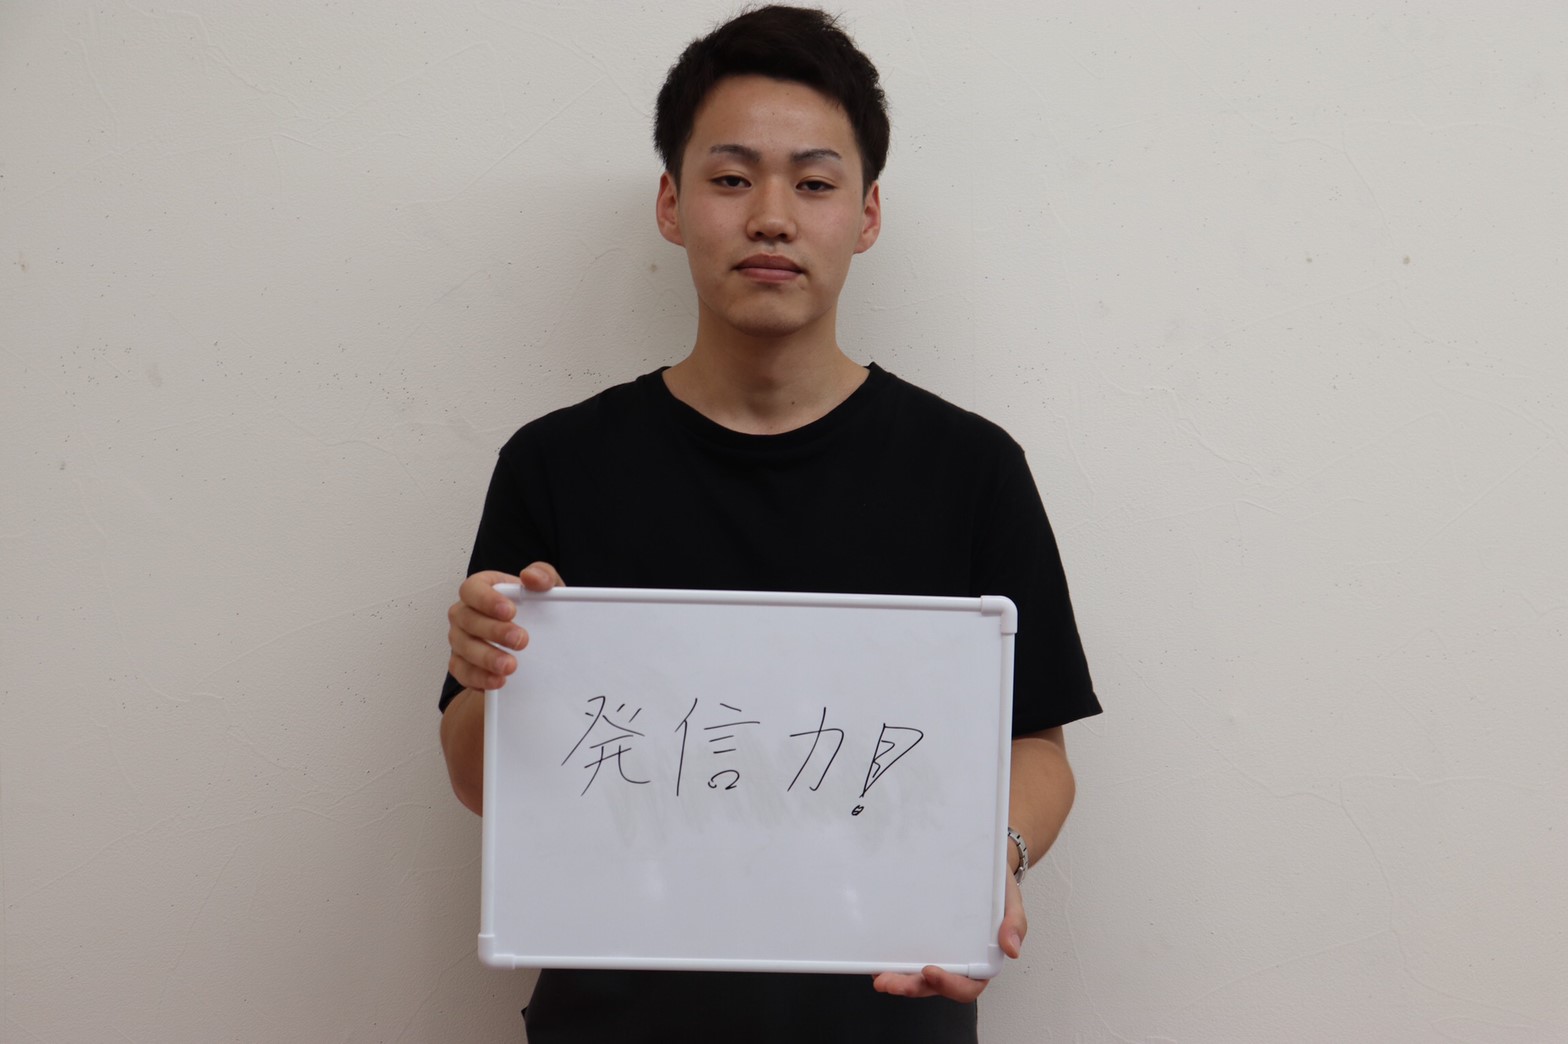 発信力!